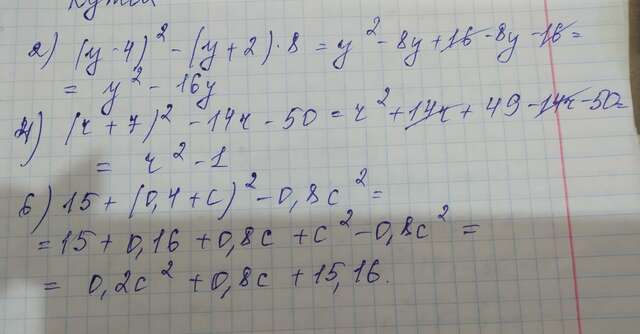 2) (y-4)² - (y+2)·8 = y² - 8y + 16 - 8y - 16 =
= y² - 16y
4) (r+7)² - 14r - 50 = r² + 14r + 49 - 14r - 50 =
= r² - 1
6) 15 + (0,4 + c)² - 0,8c² =
= 15 + 0,16 + 0,8c + c² - 0,8c² =
= 0,2c² + 0,8c + 15,16.